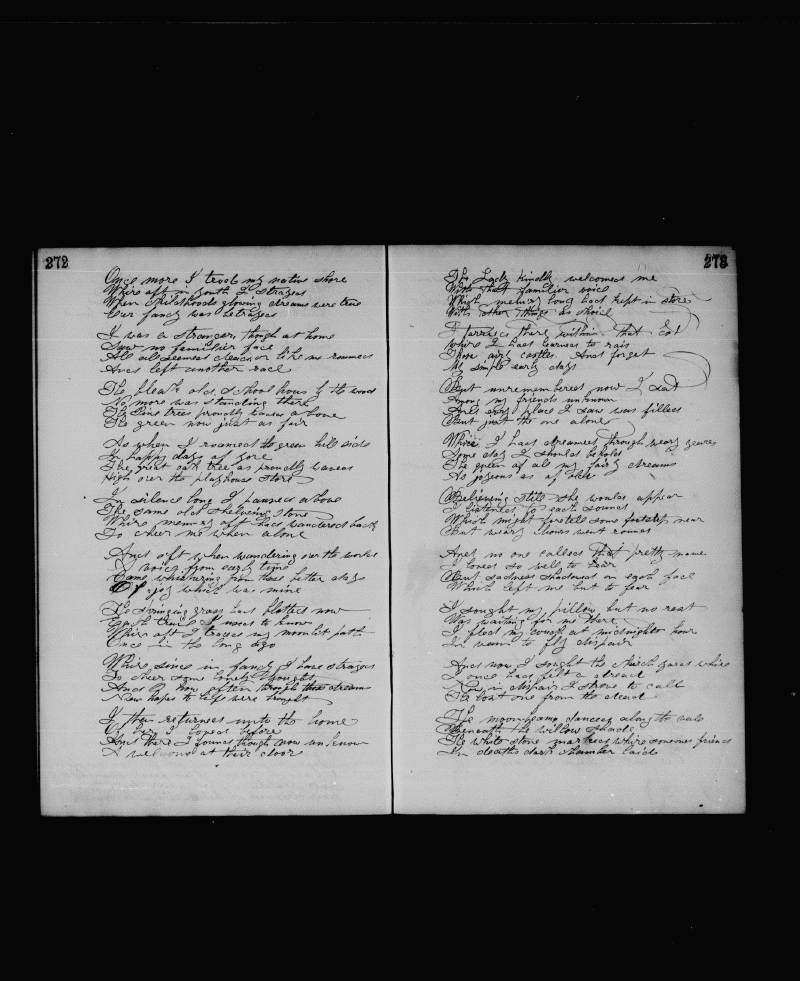 272
Once more I trod my native shore
Where oft in youth I strayed
When childhoods glowing dreams were true
Our fancy was betrayed
I was a stranger, though at home
Saw no familier face
All all seemed dead or like me roamed
And left another race
The bleak old school house by the wood
No more was standing there
The Pine trees proudly waved above
The green now just as fair
As when I roamed the green hill side
In happy days of yore
The great oak tree as proudly waved
High over the playhouse store
In silence long I paused above
The same old shelving stone
Where memory oft had wandered back
To cheer me when alone
And oft when wandering over the world
A voice from early time
Came whispering from those better days
Of joy which was mine
The springing grass had blotted now
Each trail I used to know
Where oft I traced my moonlit path
Once in the long ago
Where since in fancy I have strayed
To cheer some lonely thought
And O how often through those dreams
New hopes to life were brought
I then returned unto the home
I loved before
And there I found though now unknown
A welcome at their door
273
The Lady kindly welcomed me
With that familier voice
Which memory long had kept in store
With other things as choice
I tarried there within that
Where I had learned to rais
Those airy castles. And forget
My simple early days
But unremembered now I sat
Among my friends unknown
And every place I saw was filled
But just the one alone
Where I had dreamed through weary years
Some day I should behold
The queen of all my fairy dreams
As joyous as of old
Believeing still she would appear
I listened to each sound
Which might foretell some footstep near
But weary hours went round
And no one called that pretty name
I loved so well to hear
But sadness shadowed on each face
Which left me but to fear
I sought my pillow but no rest
Was waiting for me there
I fled my couch at midnight hour
In vain to fly dispair
And now I sought the church yard where
I once had felt a dread
Now in dispair I strove to call
The lost one from the dead
The moonbeams danced along the vale
Beneath the willow shade
The white stone marked where someones friend
In deaths dark slumber laid